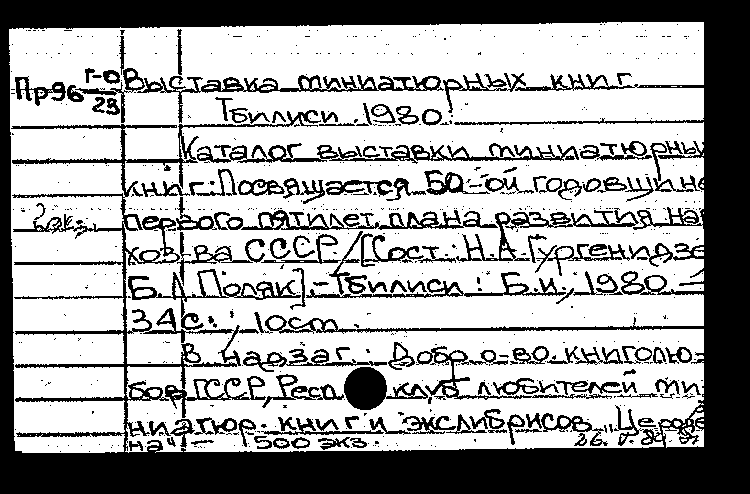 Пр96 г-0/23 Выставка миниатюрных книг.
Тбилиси. 1980.
Каталог выставки миниатюрны
книг: Посвящается 50-ой годовщине
2 экз. первого пятилет. плана развития на
хоз-ва СССР / [Сост.: Н.А. Гургенидзе
Б.Л. Поляк]. - Тбилиси: Б.и., 1980. -
34 с.; 10 см.
В надзаг.: Добр. о-во. книголю-
бов ГССР, Респ. клуб любителей ми-
ниатюр. книг и экслибрисов „Цероде
на" - 500 экз.